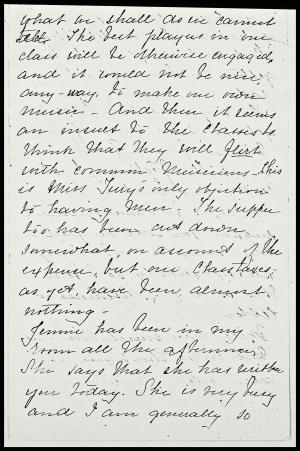 what we shall do as we cannot
The best players in our
class will be otherwise engaged,
and it would not be nice
any-way, to make our own
music - And then it seems
an insult to the classists
think that they will flirt
with common musicians - this
is Miss Terry's only objection
to having men. The supper
too has been cut down
somewhat, on account of the
expense, but our class taxes
as yet have been almost
nothing -
Jennie has been in my
room all the afternoon.
She says that she has written
you today. She is very busy
and I am generally so